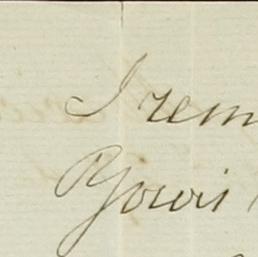 I rem
Yours